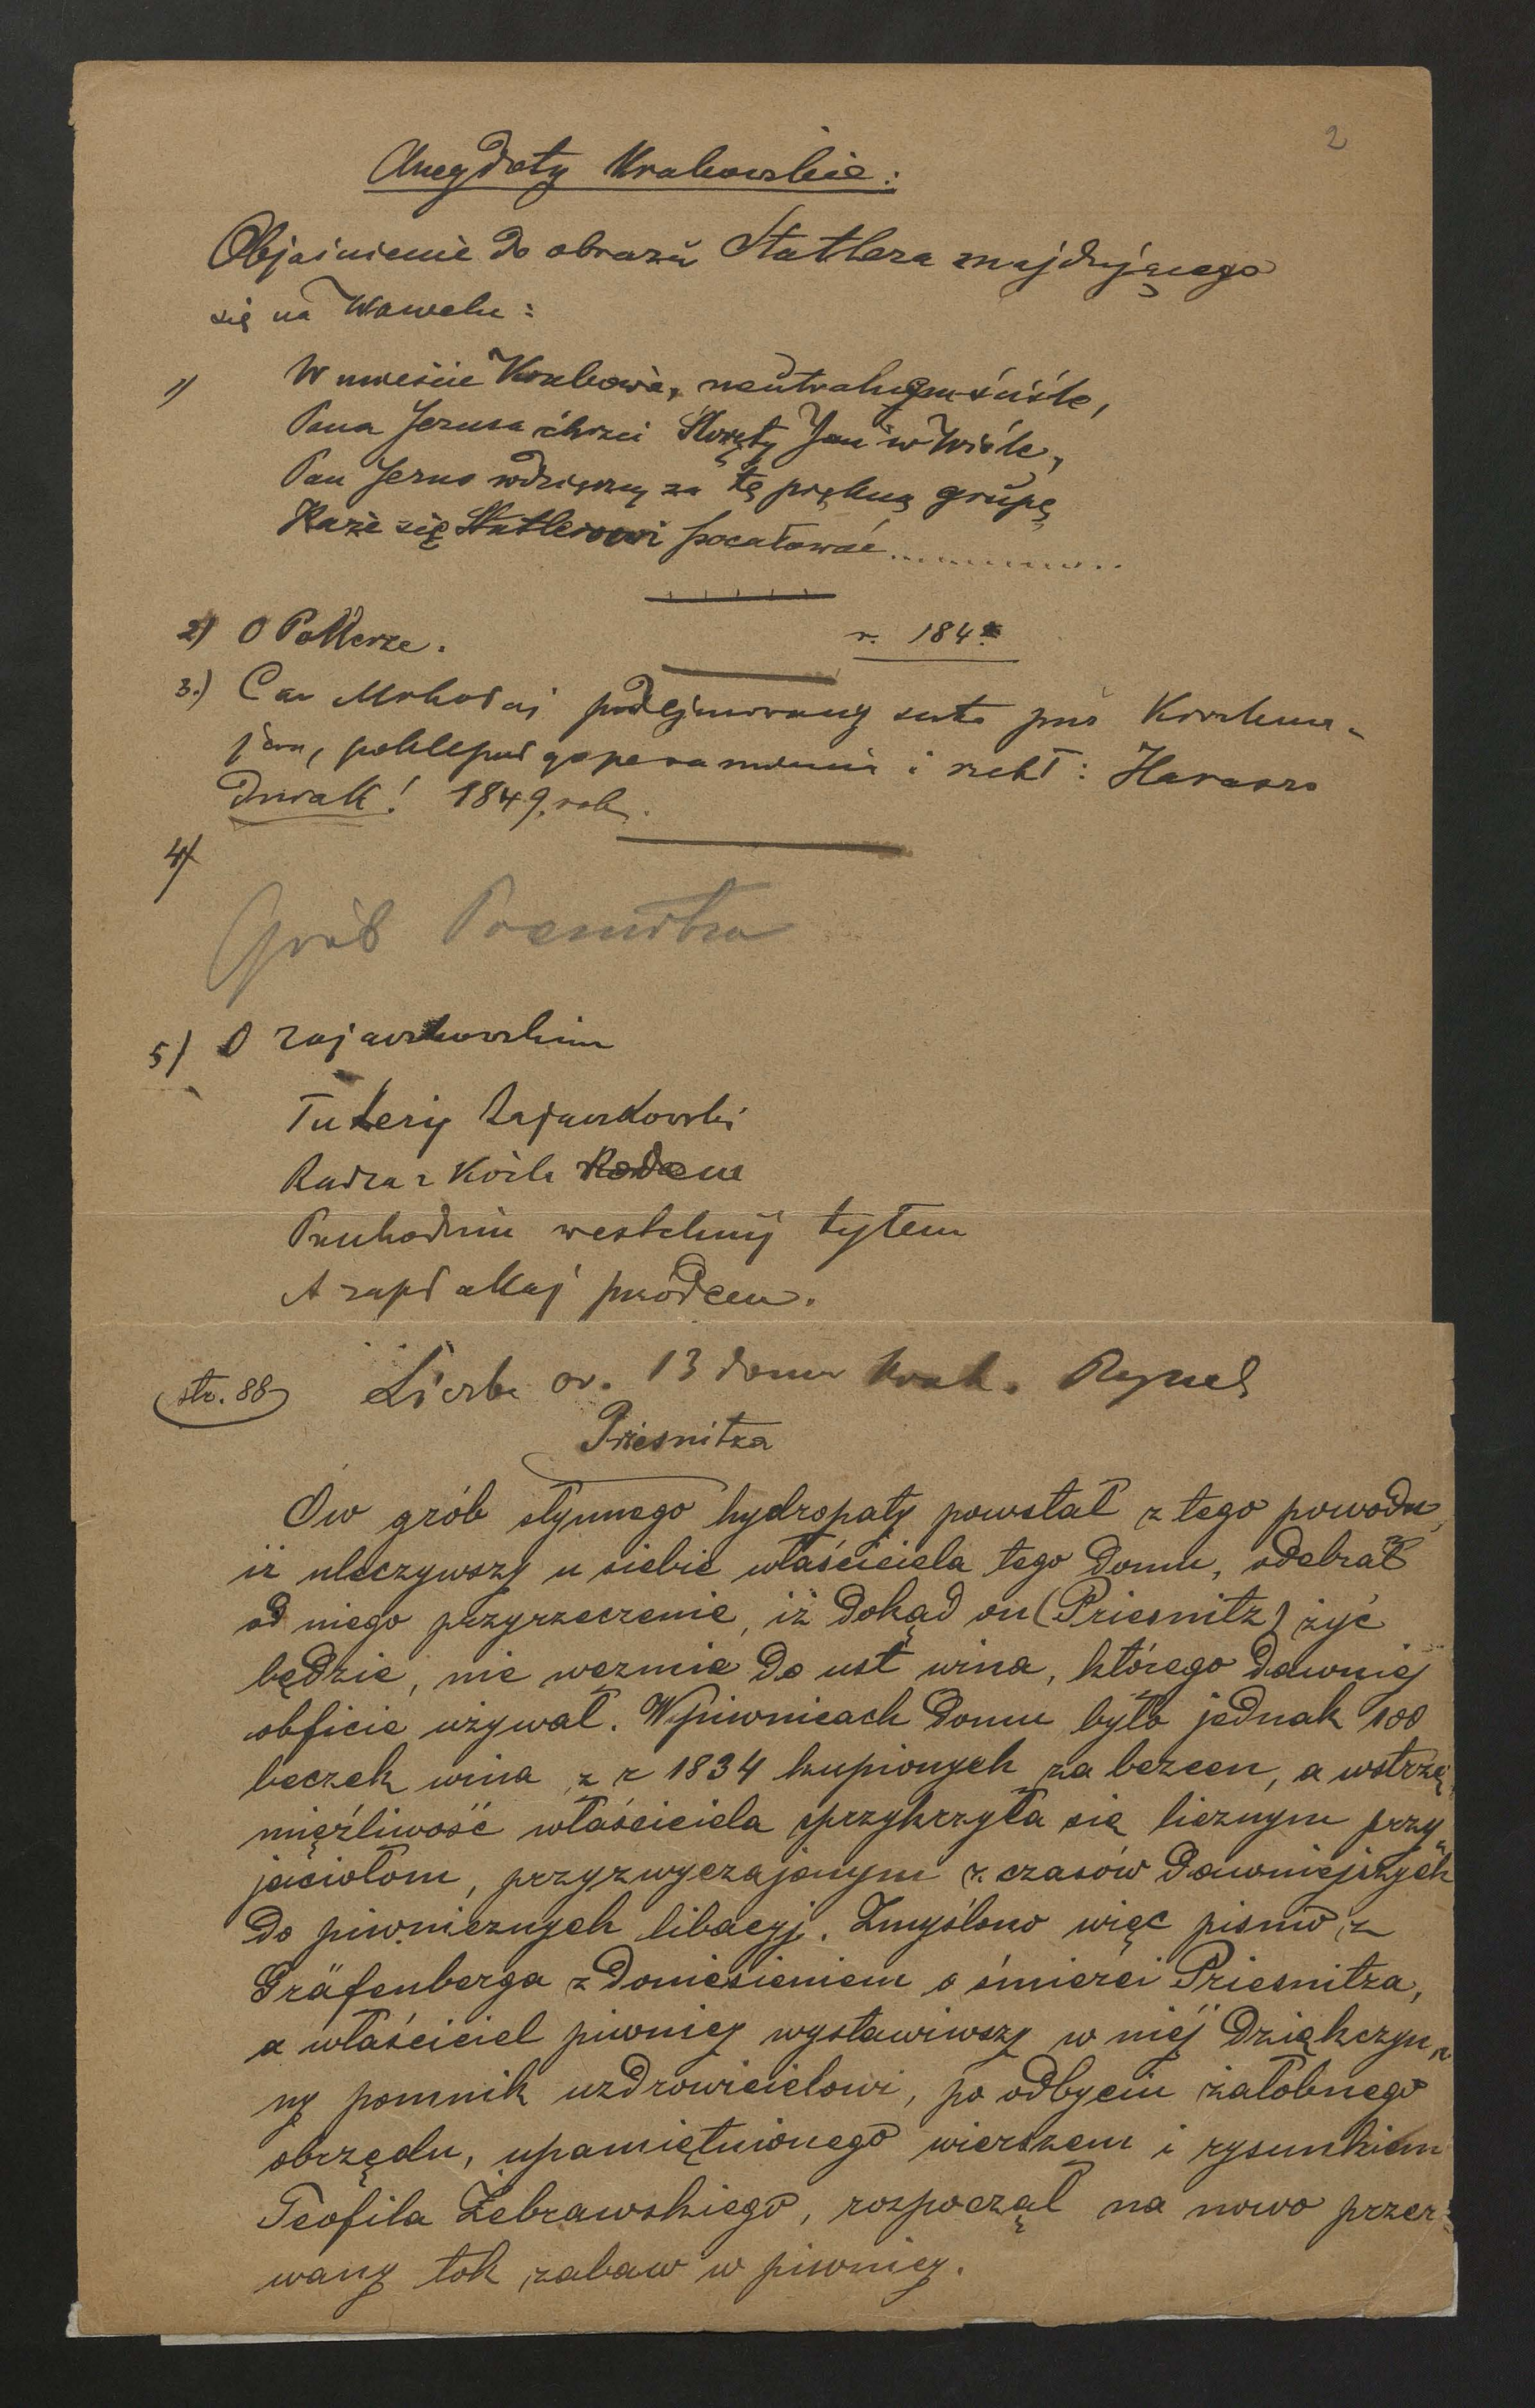 2
Anegdoty Krakowskie:
Objaśnienie do obrazu Statlera znajdującego
się na Wawelu:
1) W mieście Krakowie, neutralnym ściśle,
Pana Jezusa chrzci Święty Jan w Wiśle,
Pan Jezus wdzięczny za tę piękną grupę
Każe się Statlerowi pocałować............
2) O Pollerze. r. 184
3.) Car Mikołaj podejmowany suto
poklepał go po ramieniu i rzekł: Haraszo
Durak! 1849. rok.
4)
Grób Preznitza
5) O Zajączkowskim
Tu leży Zajączkowski
Radca z Koźla rodem
Przechodniu westchnij tyłem
A zapłakaj przodem.
str. 88 Liczba or. 13 domu Krak. Rynek
Priesnitza
Ów grób słynnego hydropaty powstał z tego powodu,
iż uleczywszy u siebie właściciela tego domu, odebrał
od niego przyrzeczenie, iż dokąd on (Priesnitz) żyć
będzie, nie weźmie do ust wina, którego dawniej
obficie używał. W piwnicach domu było jednak 100
beczek wina z r 1834 kupionych za bezcen, a wstrze„
mięźliwość właściciela sprzykrzyła się licznym przy„
jaciołom, przyzwyczajonym z czasów dawniejszych
do piwnicznych libacyj. Zmyślono więc pismo z
Gräfenberga z doniesieniem o śmierci Priesnitza,
a właściciel piwnicy wystawiwszy w niéj dziękczyn„
ny pomnik uzdrowicielowi, po odbyciu żałobnego
obrzędu, upamiętnionego wierszem i rysunkiem
Teofila Żebrawskiego, rozpoczął na nowo przer„
wany tok zabaw w piwnicy.